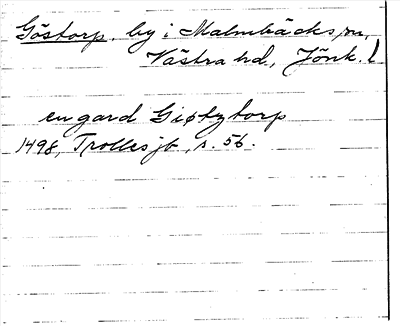 Göstorp, by i Malmbäcks sn,
Västra hd, Jönk. l
en gard Giøtztorp
1498, Trolles jb, s. 56.